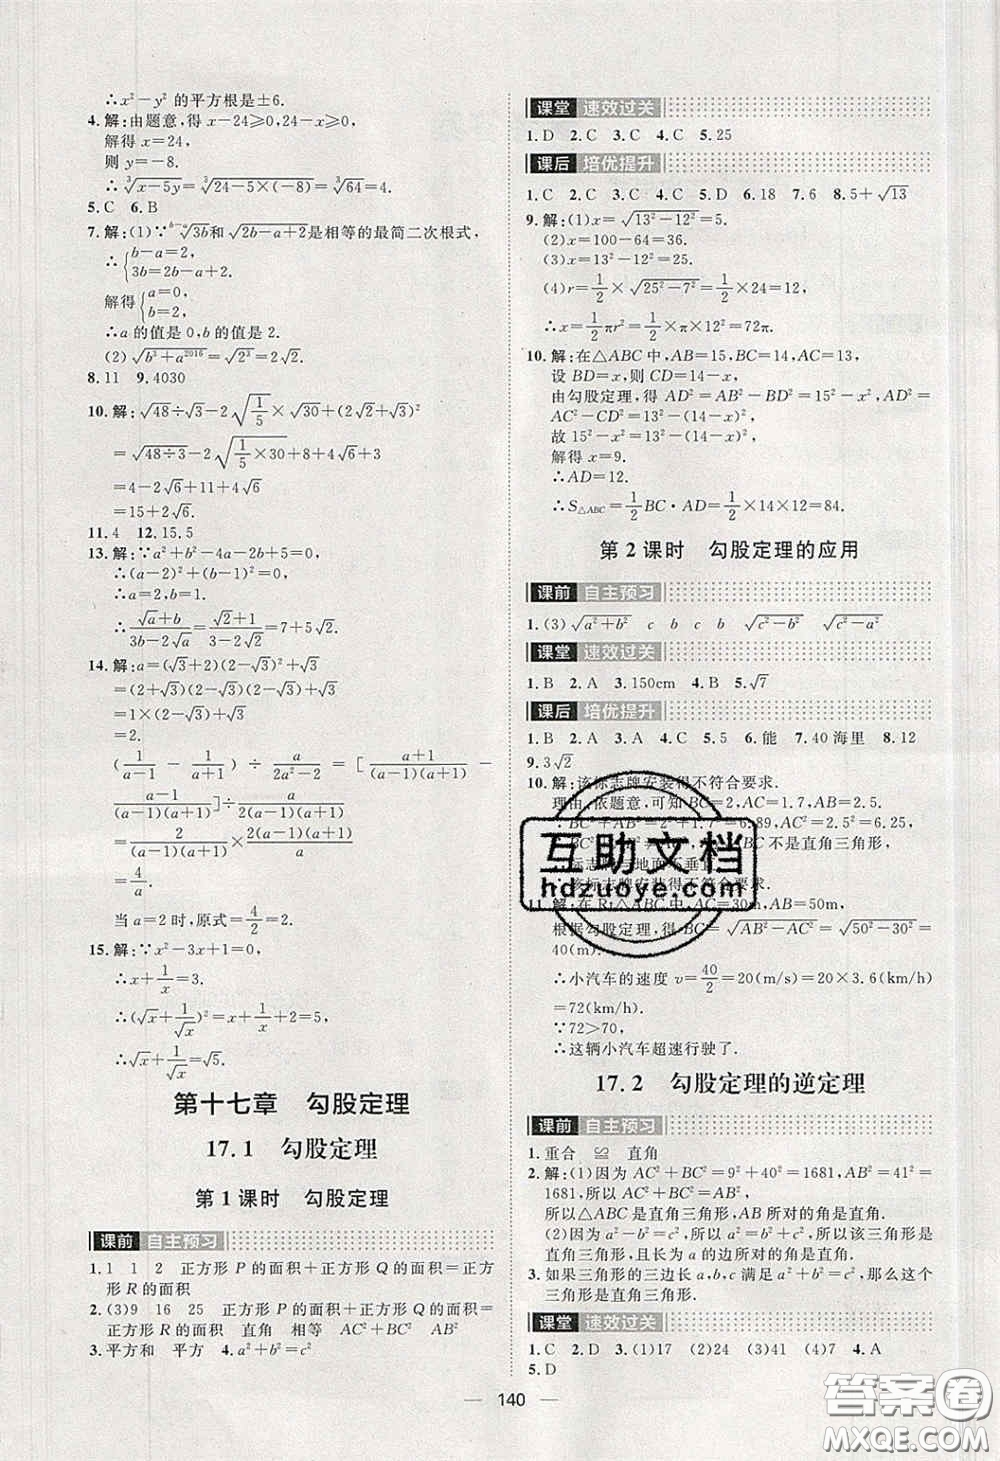 ∴x²－y² 的平方根是±6.
4.解:由题意,得 x－24≥0,24－x≥0,
解得 x=24,
则 y=－8.
∴∛(x－5y)=∛(24－5×(－8))=∛64=4.
5.C 6.B
7.解:(1)∵ᵇ⁻ᵃ√3b和√(2b－a+2)是相等的最简二次根式,
∴{b－a=2, 3b=2b－a+2.
解得{a=0, b=2,
∴a 的值是 0,b 的值是 2.
(2)√(b³+a²⁰¹⁶)=√2³=2√2.
8.11 9.4030
10.解:√48÷√3－2√(1/5)×√30+(2√2+√3)²
=√(48÷3)－2√(1/5×30)+8+4√6+3
=4－2√6+11+4√6
=15+2√6.
11.4 12.15.5
13.解:∵a²+b²－4a－2b+5=0,
∴(a－2)²+(b－1)²=0,
∴a=2,b=1.
∴(√a+b)/(3b－2√a)=(√2+1)/(3－2√2)=7+5√2.
14.解:a=(√3+2)(2－√3)
=(2+√3)(2－√3)
=1×(2－√3)(2+√3)
=2.
(1/(a－1)－1/(a+1))÷a/(2a²－2)=[(a+1)/((a－1)(a+1))－
(a－1)/((a－1)(a+1))]÷a/(2(a－1)(a+1))
=2/((a－1)(a+1))×2(a－1)(a+1)/a
=4/a.
当 a=2 时,原式=4/2=2.
15.解:∵x²－3x+1=0,
∴x+1/x=3.
∴(√x+1/√x)²=x+1/x+2=5,
∴√x+1/√x=√5.
第十七章 勾股定理
17.1 勾股定理
第 1 课时 勾股定理
课前 自主预习
1.1 1 2 正方形 P 的面积+正方形 Q 的面积=正方
形 R 的面积
2.(3)9 16 25 正方形 P 的面积+正方形 Q 的面积=
正方形 R 的面积 直角 相等 AC²+BC²=AB²
3.平方和 平方 4.a²+b²=c²
课堂 速效过关
1.D 2.C 3.C 4.C 5.25
课后 培优提升
1.C 2.C 3.C 4.C 5.D 6.18 7.6 8.5+√13
9.解:(1)x=√(13²－12²)=5.
(2)x=100－64=36.
(3)x=13²－12²=25.
(4)r=1/2×√(25²－7²)=1/2×24=12,
∴x=1/2πr²=1/2×π×12²=72π.
10.解:在△ABC 中,AB=15,BC=14,AC=13,
设 BD=x,则 CD=14－x,
由勾股定理,得 AD²=AB²－BD²=15²－x²,AD²=
AC²－CD²=13²－(14－x)²,
故 15²－x²=13²－(14－x)².
解得 x=9.
∴AD=12.
∴S△ABC=1/2BC·AD=1/2×14×12=84.
第 2 课时 勾股定理的应用
课前 自主预习
1.(3)√(a²+b²) c b c b √(c²－b²) √(c²－a²)
课堂 速效过关
1.B 2.A 3.150cm 4.B 5.√7
课后 培优提升
1.B 2.A 3.A 4.C 5.5 6.能 7.40 海里 8.12
9.3√2
10.解:该标志牌安装得不符合要求.
理由:依题意,可知 BC=2,AC=1.7,AB=2.5.
BC²+AB²=2²+1.7²=6.89,AC²=2.5²=6.25,
BC 不是直角三角形,
标志牌与地面不垂直
∴该标志牌安装得不符合要求.
11.解:在 Rt△ABC 中,AC=30m,AB=50m,
根据勾股定理,得 BC=√(AB²－AC²)=√(50²－30²)=
40(m).
∴小汽车的速度 v=40/2=20(m/s)=20×3.6(km/h)
=72(km/h).
∵72>70,
∴这辆小汽车超速行驶了.
17.2 勾股定理的逆定理
课前 自主预习
1.重合 ≌ 直角
2.解:(1)因为 AC²+BC²=9²+40²=1681,AB²=41²=
1681,所以 AC²+BC²=AB²,
所以△ABC 是直角三角形,AB 所对的角是直角.
(2)因为 a²=b²+c²,所以 b²+c²=a²,所以该三角形是
直角三角形,且长为 a 的边所对的角是直角.
3.如果三角形的三边长 a,b,c 满足 a²+b²=c²,那么这个
三角形是直角三角形.
课堂 速效过关
1.C 2.D 3.(1)17 (2)24 (3)41 (4)7 4.A
5.D
140
互助文档
hdzuoye.com
答案圈
MXQE.COM